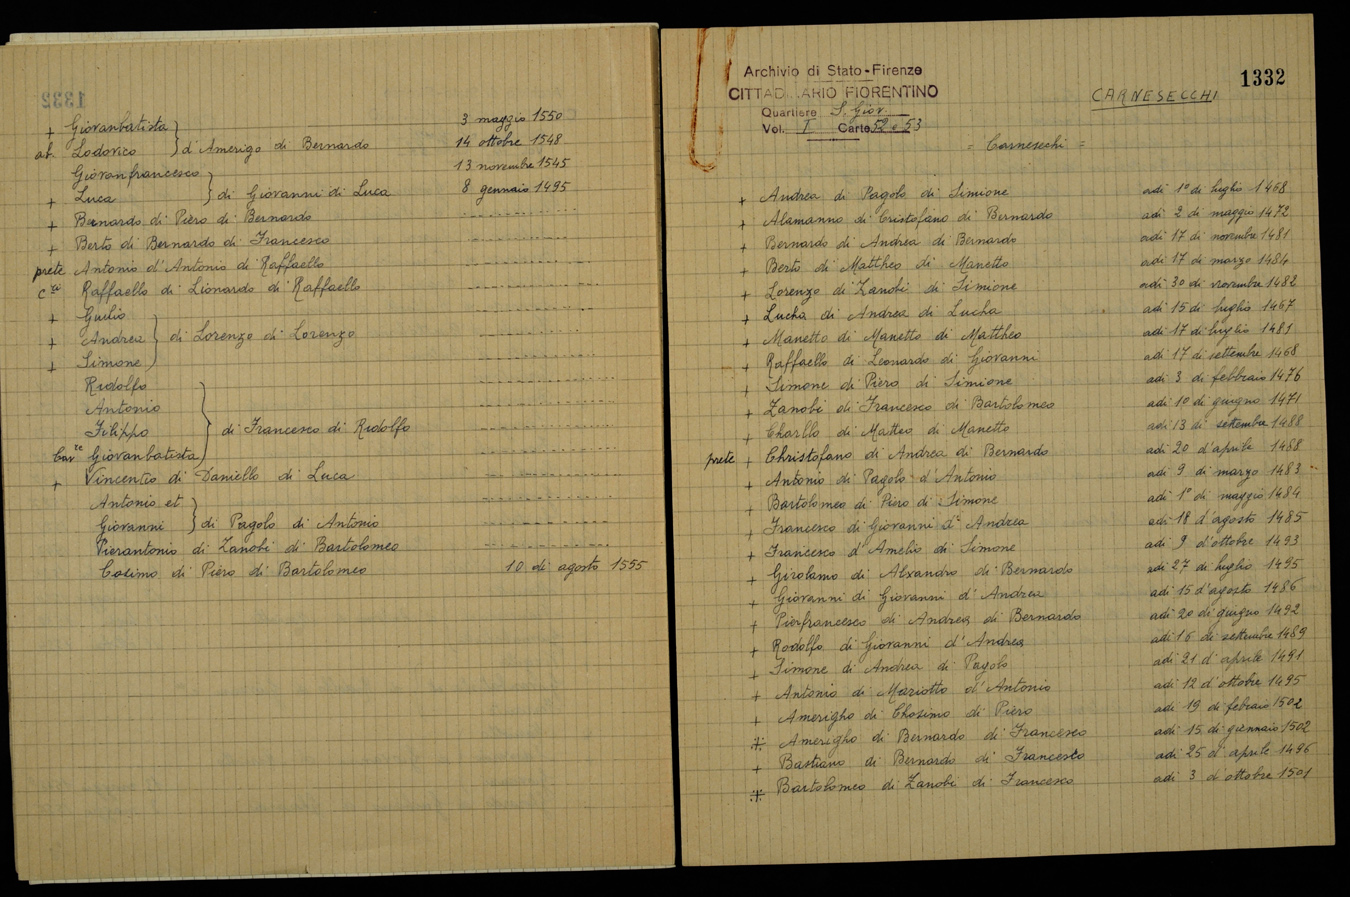 + Giovanbatista
3 maggio 1550
ab. Lodovico } d'Amerigo di Bernardo
14 ottobre 1548
Giovanfrancesco
13 novembre 1545
+ Luca } di Giovanni di Luca
8 gennaio 1495
+ Bernardo di Piero di Bernardo
+ Berto di Bernardo di Francesco
prete Antonio d'Antonio di Raffaello
Raffaello di Lionardo di Raffaello
+ Giulio
+ Andrea } di Lorenzo di Lorenzo
+ Simone
Ridolfo
Antonio
Filippo } di Francesco di Ridolfo
Cavre Giovanbatista
+ Vincentio di Daniello di Luca
Antonio et
Giovanni } di Pagolo di Antonio
Pierantonio di Zanobi di Bartolomeo
Cosimo di Piero di Bartolomeo 10 di agosto 1555
1332
Archivio di Stato - Firenze
CITTADINARIO FIORENTINO
Quartiere S. Giov.
Vol. I Carte 52 e 53
CARNESECCHI
= Carnesechi =
+ Andrea di Pagolo di Simione adi 1° di luglio 1468
+ Alamanno di Cristofano di Bernardo adi 2 di maggio 1472
+ Bernardo di Andrea di Bernardo adi 17 di novembre 1481
+ Berto di Mattheo di Manetto adi 17 di marzo 1484
+ Lorenzo di Zanobi di Simione adi 30 di novembre 1482
+ Lucha di Andrea di Lucha adi 15 di luglio 1467
+ Manetto di Manetto di Mattheo adi 17 di luglio 1481
+ Raffaello di Leonardo di Giovanni adi 17 di settembre 1468
+ Simone di Piero di Simione adi 3 di febbraio 1476
+ Zanobi di Francesco di Bartolomeo adi 10 di giugno 1471
+ Charllo di Matteo di Manetto adi 13 di settembre 1488
prete + Christofano di Andrea di Bernardo adi 20 d'aprile 1488
+ Antonio di Pagolo d'Antonio adi 9 di marzo 1483
+ Bartolomeo di Piero di Simone adi 1° di maggio 1484
+ Francesco di Giovanni d'Andrea adi 18 d'agosto 1485
+ Francesco d'Amelio di Simone adi 9 d'ottobre 1493
+ Girolamo di Alxandro di Bernardo adi 27 di luglio 1495
+ Giovanni di Giovanni d'Andrea adi 15 d'agosto 1486
+ Pierfrancesco di Andrea di Bernardo adi 20 di giugno 1492
+ Rodolfo di Giovanni d'Andrea adi 16 di settembre 1489
+ Simone di Andrea di Pagolo adi 21 d'aprile 1491
+ Antonio di Mariotto d'Antonio adi 12 d'ottobre 1495
+ Amerigho di Chosimo di Piero adi 19 di febraio 1502
Amerigho di Bernardo di Francesco adi 15 di giennaio 1502
+ Bastiano di Bernardo di Francesco adi 25 d'aprile 1496
Bartolomeo di Zanobi di Francesco adi 3 d'ottobre 1501